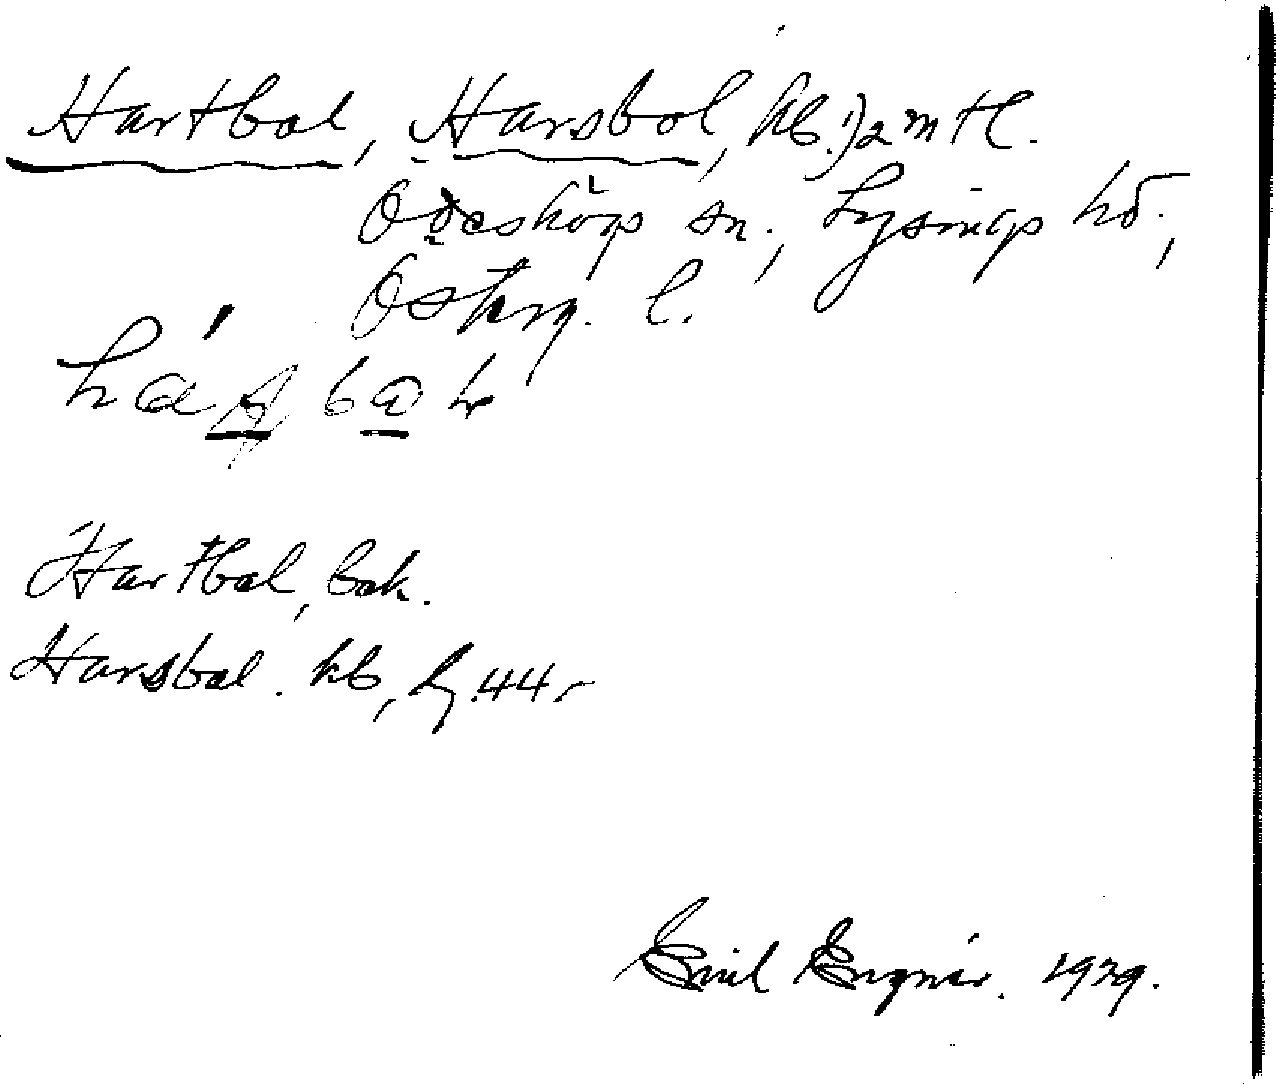 Hartbol, Harsbol, kb. 1/2 mtl.
Ödeshögs sn., Lysings hd.,
Östrg. l.
Hartbol, bok.
Harsbol. kb, Lg. 44,-
Emil Engnér. 1929.